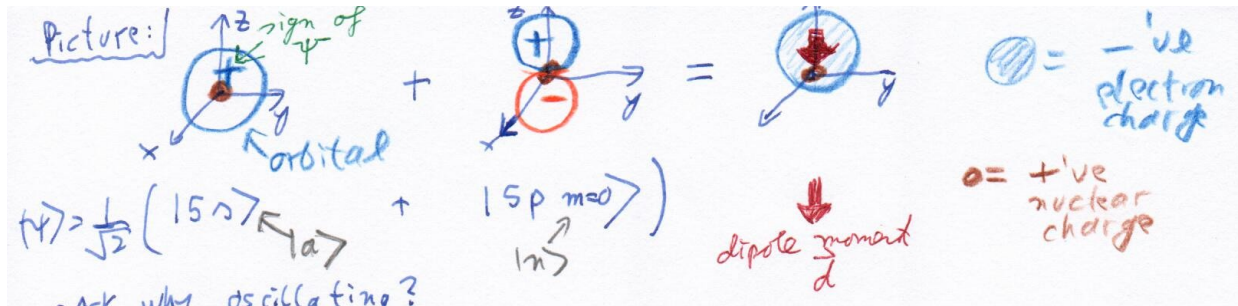 Picture:
z sign of ψ
+
y
x
orbital
+
z
+
-
y
x
=
y
= -'ve
electron
charge
= +'ve
nuclear
charge
|ψ> = 1/√2 ( |5s> + |5p m=0> )
|a>
|n>
dipole moment
d
why oscillating?